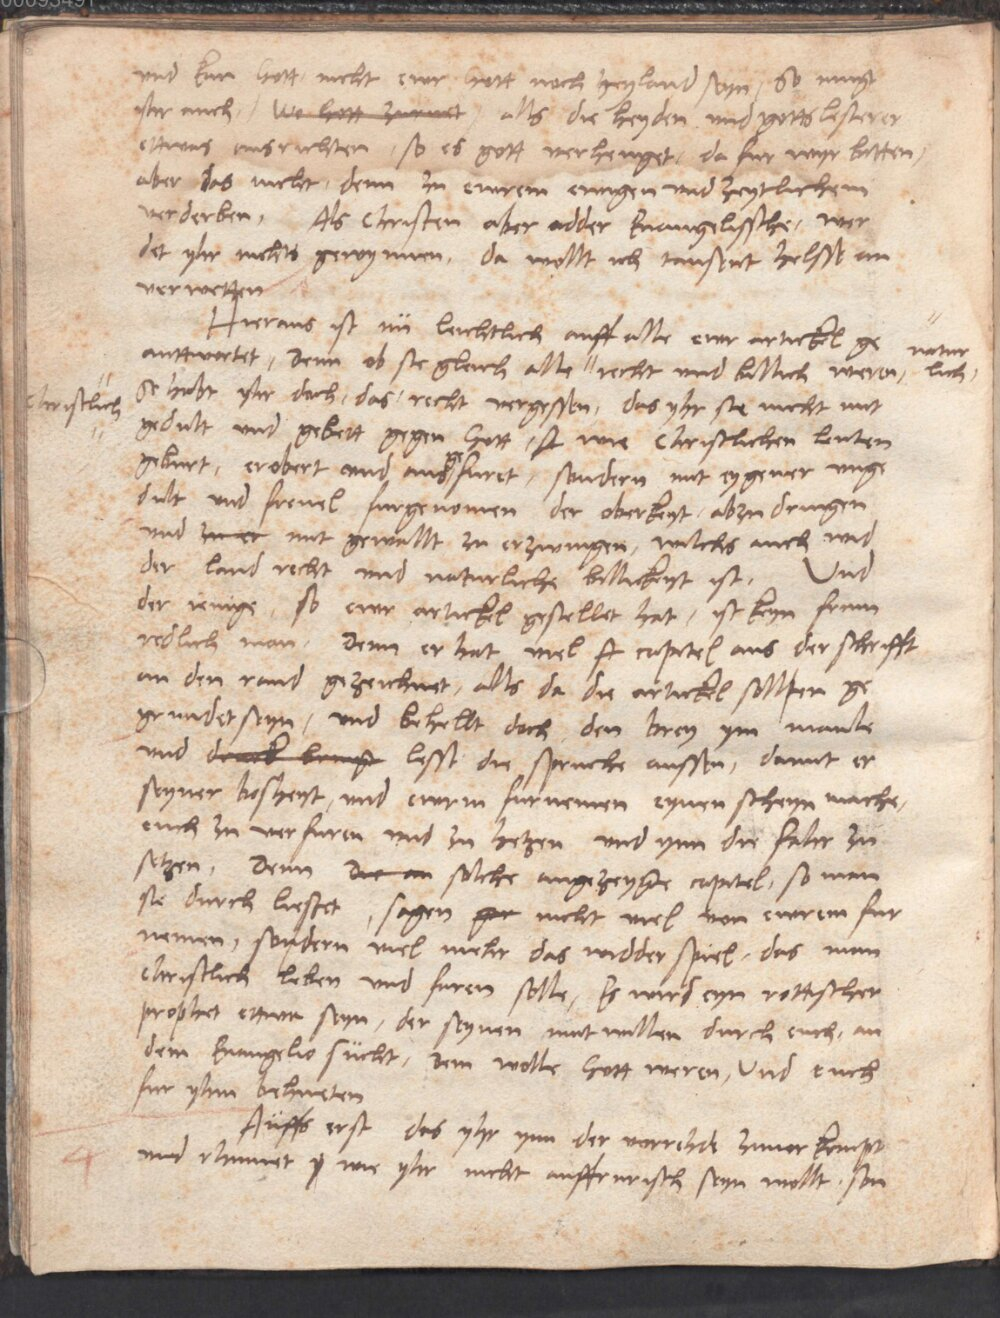 00093491
und kan Gott nicht ewr Gott noch heyland seyn, So mugt
yhr auch, wo Gott zurnet, alls die heyden und gottslesterer
ettwas ausrichten, so es gott verhenget, da fur wyr bitten,
aber das nicht, denn zu ewrem ewigen und zeytlichem
verderben, Als Christen aber odder Euangelissche, wer
det yhr nichts gewynnen, da wollt ich tausent helsse an
verwetten
Hieraus ist nü leichtlich auff alle ewr artickel ge
anttwortet, Denn ob sie gleich alle recht und billich weren,
natur
lich,
So habt yhr doch, das recht vergessen, das yhr sie nicht mit
Christlich
gedult und gebett gegen Gott, wie Christlichen leuten
geburt, erobert und ausgefuret, sondern mit eygener unge
dult und freuel furgenomen der oberkeyt abzu dringen
und zu er mit gewallt zu erzwingen, wilchs auch widd
der land recht und naturliche billickeyt ist, Und
der ienige, so ewr artickel gestellet hat, ist keyn frum
redlich man, Denn er hat viel capitel aus der schrifft
an den rand gezeichnet, alls da die artickel sollten ge
grundet seyn, und behellt doch den brey ym maule
und lesst die spruche aussen, damit er
seyner bosheyt, und ewrm furnemen eynen scheyn mache,
euch zu verfuren und zu hetzen und ynn die fahr zu
setzen, Denn solche angezeygte capitel, so man
sie durch lieset, sagen gar nicht viel von ewrem fur
nemen, sondern viel mehr das widder spiel, das man
Christlich leben und faren solle, Es wird eyn rottischer
prophet ettwa seyn, der seynen mutwillen durch euch, an
dem Euangelio sücht, Dem wolle Gott weren, Und euch
fur yhm behueten
Auffs erst das yhr ynn der vorrehde zuuor kompt
und rhumet wie yhr nicht auffrurisch seyn wollt, son